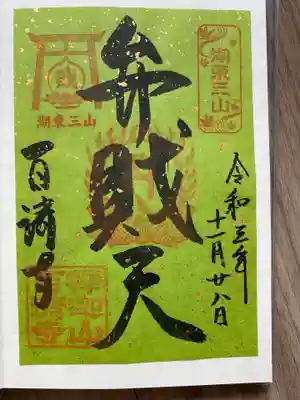 湖東三山
令和三年
十一月廿八日
弁財天
湖東三山
百済寺